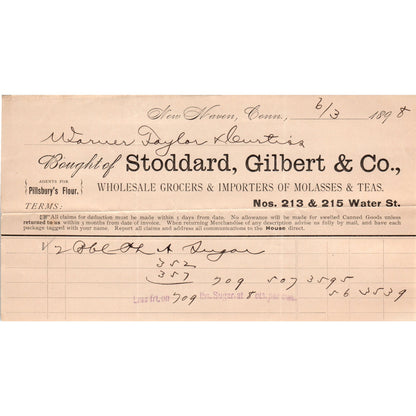 New Haven, Conn., 6/3 1898
Warner Taylor & Curtiss
Bought of Stoddard, Gilbert & Co.,
AGENTS FOR
{Pillsbury's Flour.}
WHOLESALE GROCERS & IMPORTERS OF MOLASSES & TEAS.
TERMS:
Nos. 213 & 215 Water St.
All claims for deduction must be made within 5 days from date. No allowance will be made for swelled Canned Goods unless
returned to us within 2 months from date of invoice. When returning Merchandise of any description advise us fully by mail, and have each
package tagged with your name. Report all claims and address all communications to the House direct.
1/2 A Sugar
352
357 709 507 3595
Less frt. on 709 lbs. Sugar at 8 cts. per 56 3539